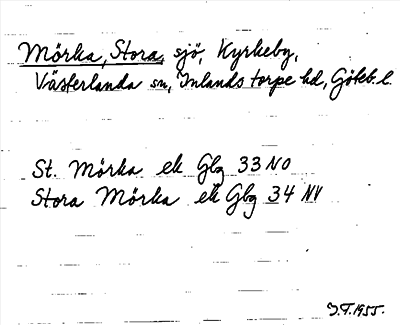 Mörka, Stora, sjö, Kyrkeby,
Västerlanda sn, Inlands torpe hd, Göteb. l.
St. Mörka ek Gbg 33 NO
Stora Mörka ek Gbg 34 NV
J.F. 1955.